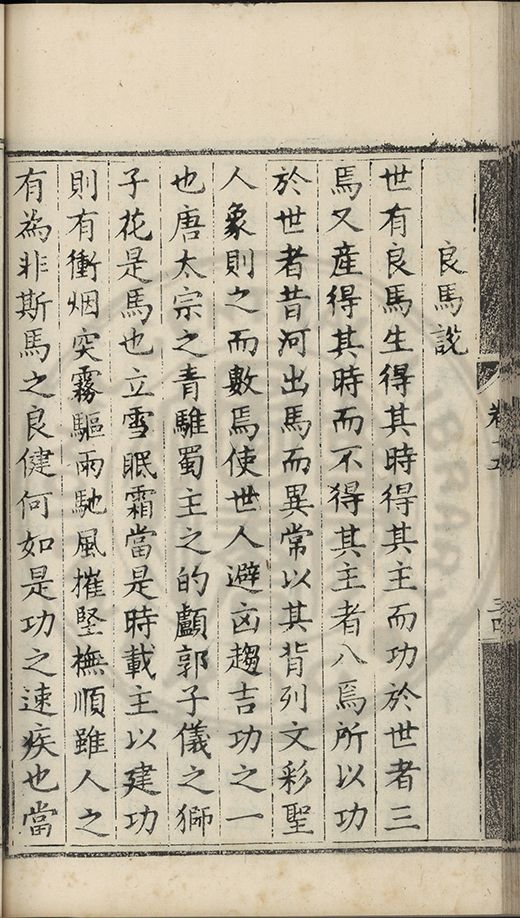 良馬説
世有良馬生得其時得其主而功於世者三
焉又產得其時而不得其主者八焉所以功
於世者昔河出馬而異常以其背列文彩聖
人象則之而數焉使世人避凶趨吉功之一
也唐太宗之青騅蜀主之的顱郭子儀之獅
子花是馬也立雪眠霜當是時載主以建功
則有衝烟突霧驅雨馳風摧堅撫順雖人之
有為非斯馬之良健何如是功之速疾也當
卷十五